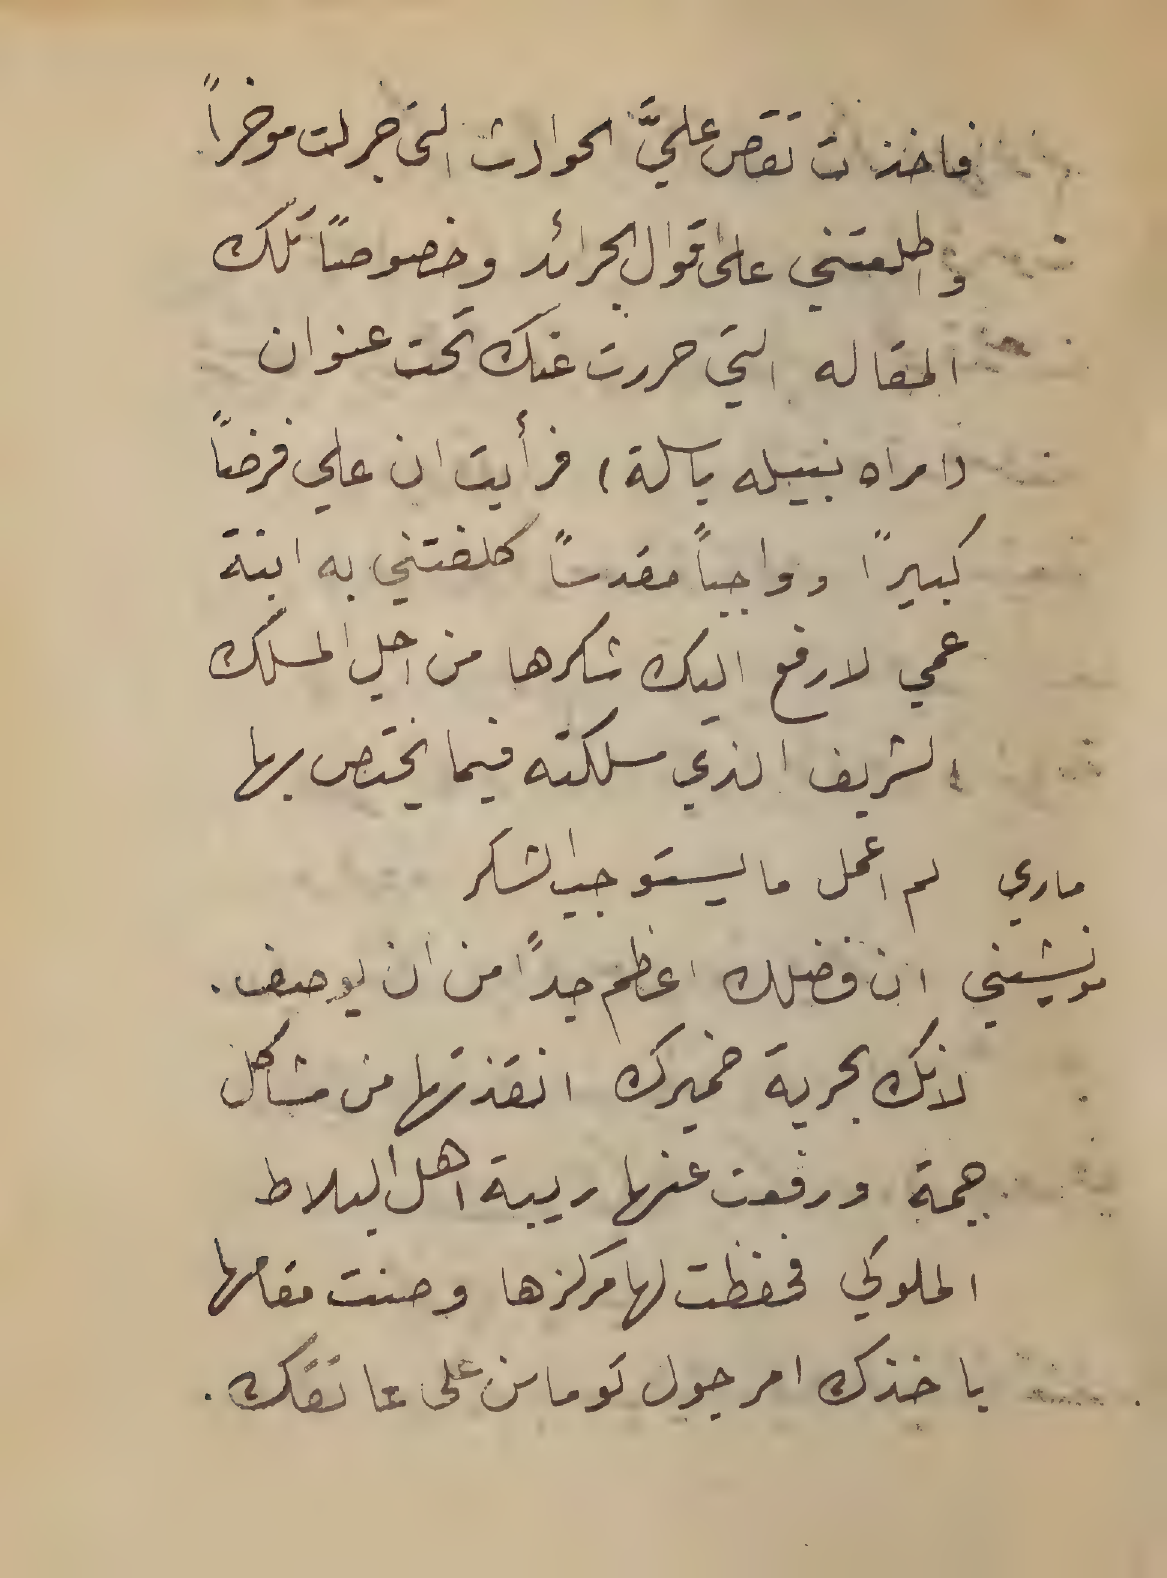 فاخذت تقص عليَّ الحوادث التي جرلت موخراً
واطلعتني على اقوال الجرائد وخصوصاً تلك
المقاله التي حررت عنك تحت عنوان
(امراه نبيله باسلة) فرأيت ان علي فرضاً
كبيراً وواجباً مقدساً كلفتني به ابنة
عمي لارفع اليك شكرها من اجل المسلك
الشريف الذي سلكته فيما يختص بها
ماري لم اعمل ما يستوجب الشكر
مونيشيني ان فضلك اعظم جداً من ان يوصف.
لانك بحرية ضميرك انقذتها من مشاكل
جمة ورفعت عنها ريبة اهل البلاط
الملوكي فحفظت لها مركزها وصنت مقامها
ياخذك امر جول توماس على عاتقك.